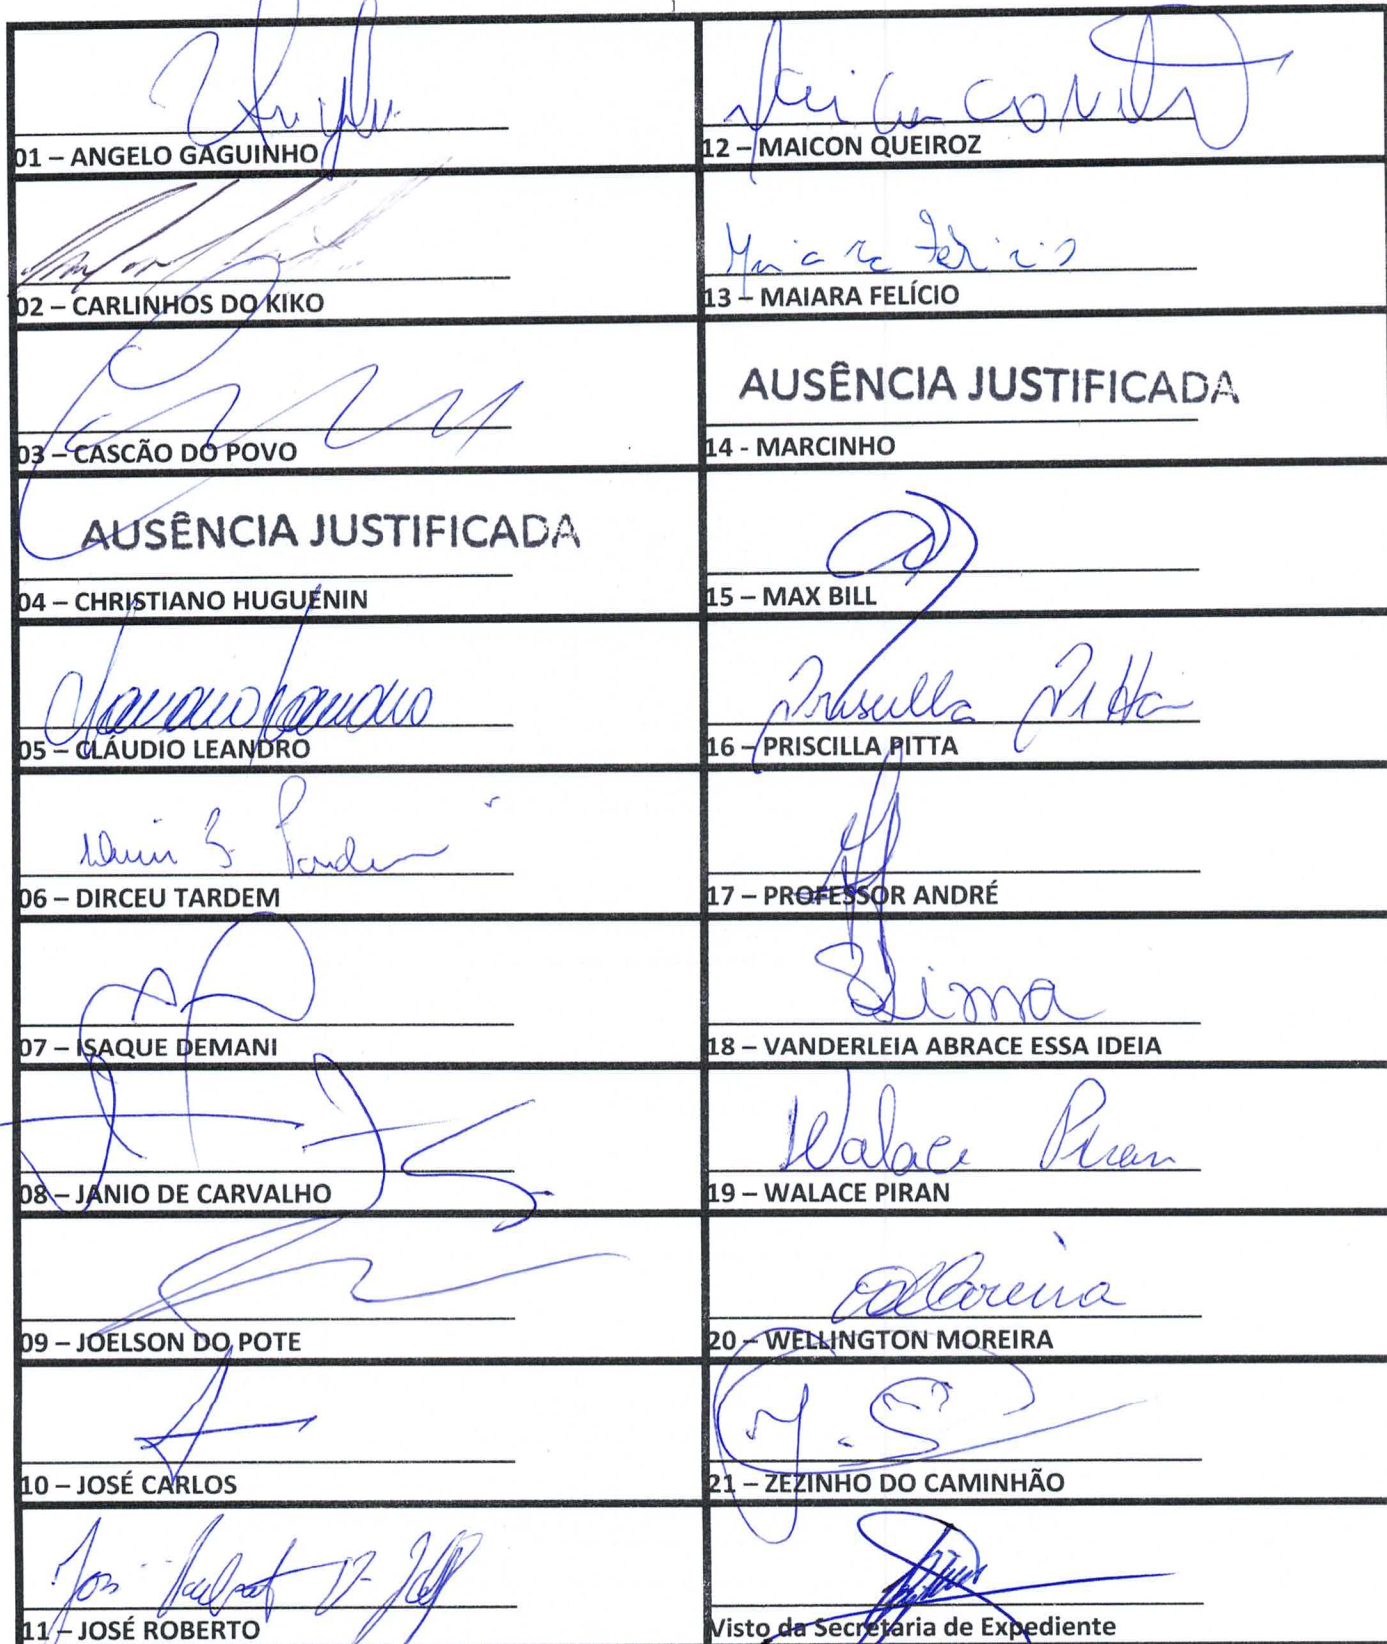 01 – ANGELO GAGUINHO
02 – CARLINHOS DO KIKO
03 – CASCÃO DO POVO
AUSÊNCIA JUSTIFICADA
04 – CHRISTIANO HUGUENIN
05 – CLÁUDIO LEANDRO
06 – DIRCEU TARDEM
07 – ISAQUE DEMANI
08 – JANIO DE CARVALHO
09 – JOELSON DO POTE
10 – JOSÉ CARLOS
11 – JOSÉ ROBERTO
12 – MAICON QUEIROZ
Maiara Felicio
13 – MAIARA FELÍCIO
AUSÊNCIA JUSTIFICADA
14 - MARCINHO
15 – MAX BILL
Priscilla Pitta
16 – PRISCILLA PITTA
17 – PROFESSOR ANDRÉ
Lima
18 – VANDERLEIA ABRACE ESSA IDEIA
Walace Piran
19 – WALACE PIRAN
20 – WELLINGTON MOREIRA
21 – ZEZINHO DO CAMINHÃO
Visto da Secretária de Expediente